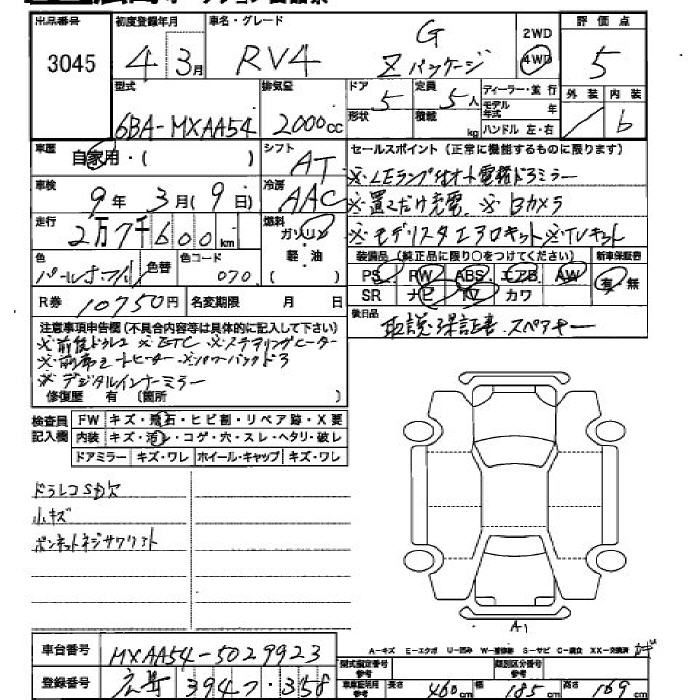 出品番号 3045
初度登録年月 4 3月
車名・グレード RV4 G Zパッケージ
2WD 4WD
評価点 5
外装 内装 b
型式 6BA-MXAA54
排気量 2000cc
ドア 5 形状
定員 5人 積載 kg
ディーラー・並行
モデル年式 年
ハンドル 左・右
車歴 自家用・( )
シフト AT
セールスポイント(正常に機能するものに限ります)
車検 9年 3月(9日)
冷房 AAC
※置くだけ充電 ※Bカメラ
※モデリスタエアロキット ※TVキット
走行 2万7千600km
燃料 ガソリン・軽・油
装備品(純正品に限り○をつけてください) 新車保証書
PS PW ABS エアB AW 有・無
SR ナビ TV カワ
色 色替 色コード 070
R券 10750円 名変期限 月 日
後日品 取説・保証書・スペアキー
注意事項申告欄(不具合内容等は具体的に記入して下さい)
※前後ドラレコ ※ETC ※ステアリングヒーター
※前席シートヒーター ※パワーバックドア
※デジタルインナーミラー
修復歴 有(箇所 )
検査員記入欄
FW キズ・飛石・ヒビ割・リペア跡・X要
内装 キズ・汚レ・コゲ・穴・スレ・ヘタリ・破レ
ドアミラー キズ・ワレ ホイール・キャップ キズ・ワレ
ドラレコSD欠
小キズ
ボンネットネジサワリアト
A1
A-キズ E-エクボ U-凹み W-補修跡 S-サビ C-腐食 XX-交換済
車台番号 MXAA54-5029923
型式指定番号 参考
類別区分番号 参考
登録番号 3947 358
車庫証明用参考 長さ 460cm 幅 185cm 高さ 169cm